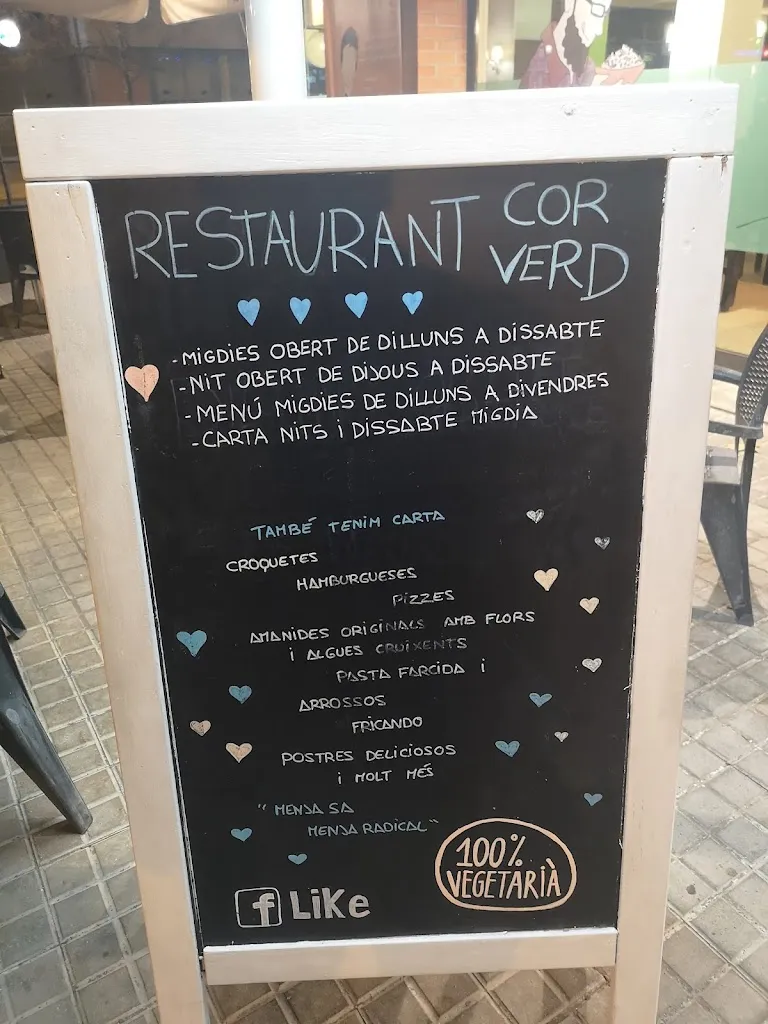 RESTAURANT COR VERD
-MIGDIES OBERT DE DILLUNS A DISSABTE
-NIT OBERT DE DIJOUS A DISSABTE
-MENÚ MIGDIES DE DILLUNS A DIVENDRES
-CARTA NITS I DISSABTE MIGDIA
TAMBÉ TENIM CARTA
CROQUETES
HAMBURGUESES
PIZZES
AMANIDES ORIGINALS AMB FLORS
I ALGUES CRUIXENTS
PASTA FARCIDA I
ARROSSOS
FRICANDO
POSTRES DELICIOSOS
I MOLT MÉS
"MENJA SA
MENJA RADICAL"
100%
VEGETARIÀ
f LiKe